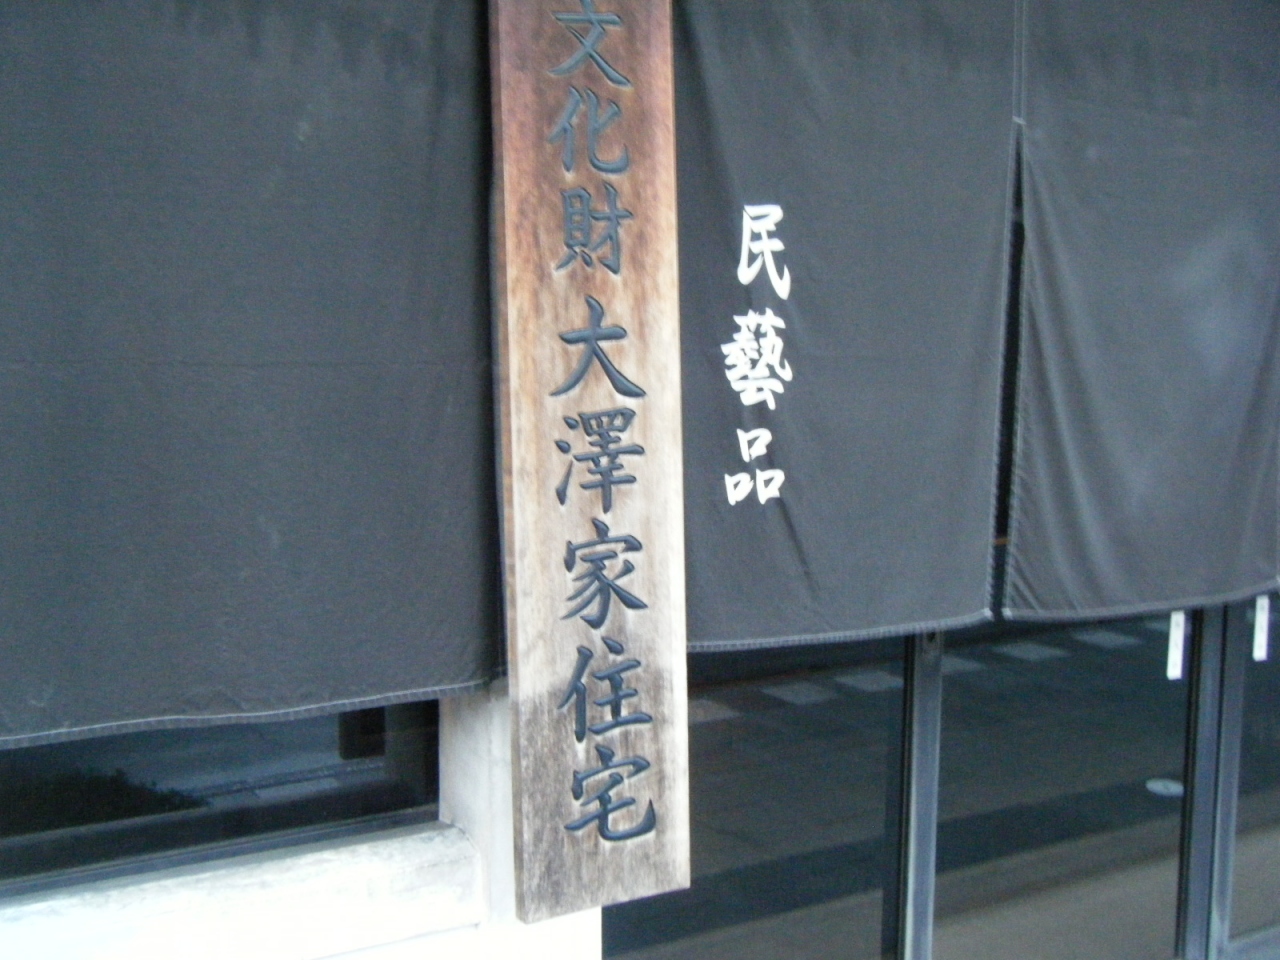 文化財 大澤家住宅
民藝品